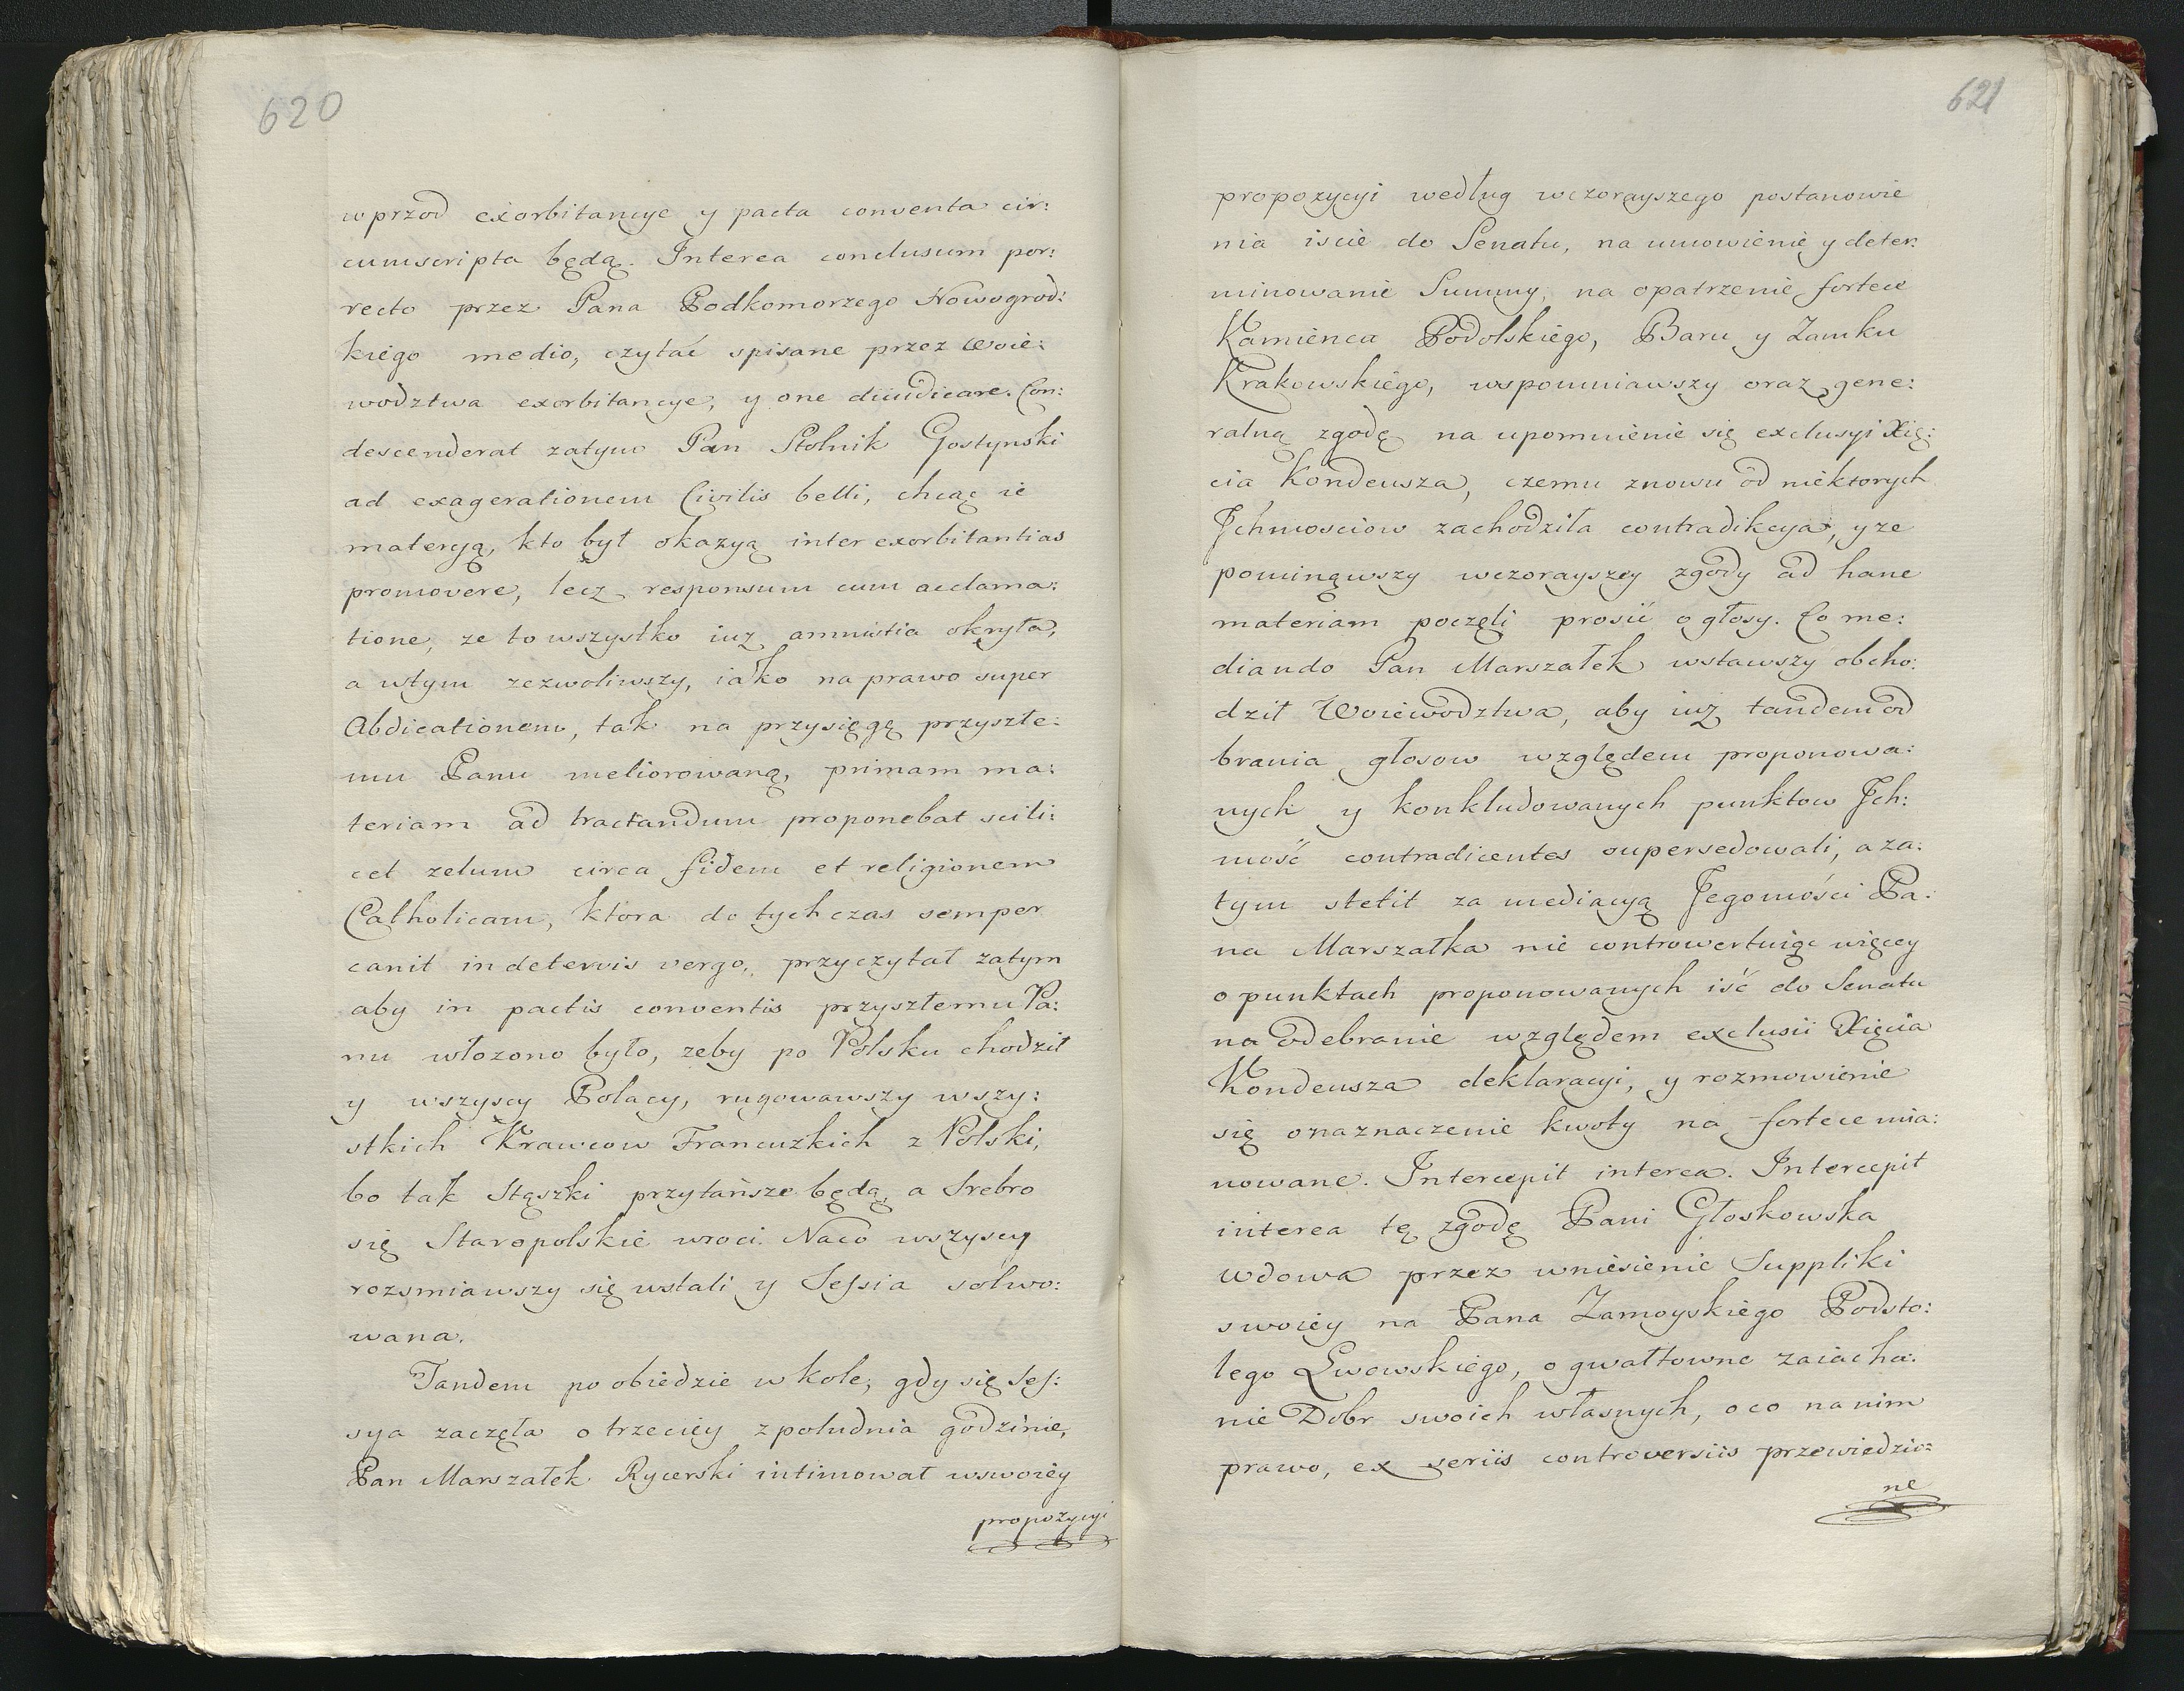 620
wprzod exorbitancye y pacta conventa cir:
cumscripta będą. Interea conclusum por:
recto przez Pana Podkomorzego Nowogrod:
kiego medio, czytać spisane przez Woie:
wodztwa exorbitancye, y one diiudicare. Con:
descenderat zatym Pan Stolnik Gostynski
ad exagerationem Civilis belli, chcąc ie
materyą, kto był okazyą inter exorbitantias
promovere, lecz responsum cum acclama:
tione, ze to wszystko iuz amnistia okryła,
a wtym zezwoliwszy, iako na prawo super
Abdicationem, tak na przysięgę przyszłe:
mu Panu meliorowaną, primam ma:
teriam ad tractandum proponebat scili:
cet zelum circa fidem et religionem
Catholicam, ktora do tych czas semper
canit in deterius vergo, przyczytał zatym
aby in pactis conventis przyszłemu Pa:
nu włozono było, zeby po Polsku chodził
y wszyscy Polacy, rugowawszy wszy:
stkich Krawcow Francuzkich z Polski,
bo tak Stąszki przytańsze będą, a Srebro
się Staropolskie wroci. Naco wszyscy
rozsmiawszy się wstali y Sessia solwo:
wana.
Tandem po obiedzie w kole, gdy się Ses:
sya zaczęła o trzeciey z południa godzinie,
Pan Marszałek Rycerski intimował wswoiey
propozycyi
621
propozycyi według wczorayszego postanowie
nia iscie do Senatu, na umowienie y deter:
minowanie Summy, na opatrzenie fortec
Kamienca Podolskiego, Baru y Zamku
Krakowskiego, wspomniawszy oraz gene:
ralną zgodę na upomnienie się exclusyi Xię:
cia Kondeusza, czemu znowu od niektorych
Ichmosciow zachodziła contradikcya, y ze
pominąwszy wczorayszey zgody ad hanc
materiam poczęli prosić o głosy. Co me:
diando Pan Marszałek wstawszy obcho:
dził Woiewodztwa, aby iuz tandem od
brania głosow względem proponowa:
nych y konkludowanych punktow Ich:
mość contradicentes supersedowali, a za:
tym stetit za mediacyą Jegomości Pa:
na Marszałka nie controwertuiąc więcey
o punktach proponowanych iść do Senatu
na odebranie względem exclusii Xięcia
Kondeusza deklaracyi, y rozmowienie
się o naznaczenie kwoty na fortece mia:
nowane. Intercepit interea. Intercepit
interea tę zgodę Pani Głoskowska
wdowa przez wniesienie Suppliki
swoiey na Pana Zamoyskiego Podsto:
lego Lwowskiego, o gwałtowne zaiacha:
nie Dobr swoich własnych, o co na nim
prawo, ex seriis controversiis przewiedzio:
ne